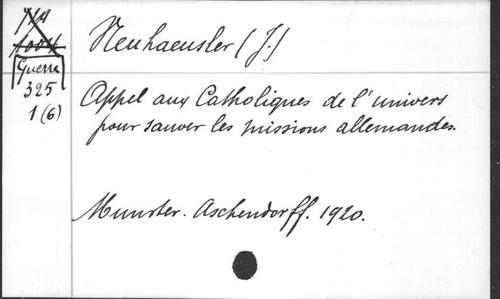 Guerre
325
1(6)
Neuhaeusler (J.)
Appel aux Catholiques de l'univers
pour sauver les missions allemandes.
Munster. Aschendorff. 1920.